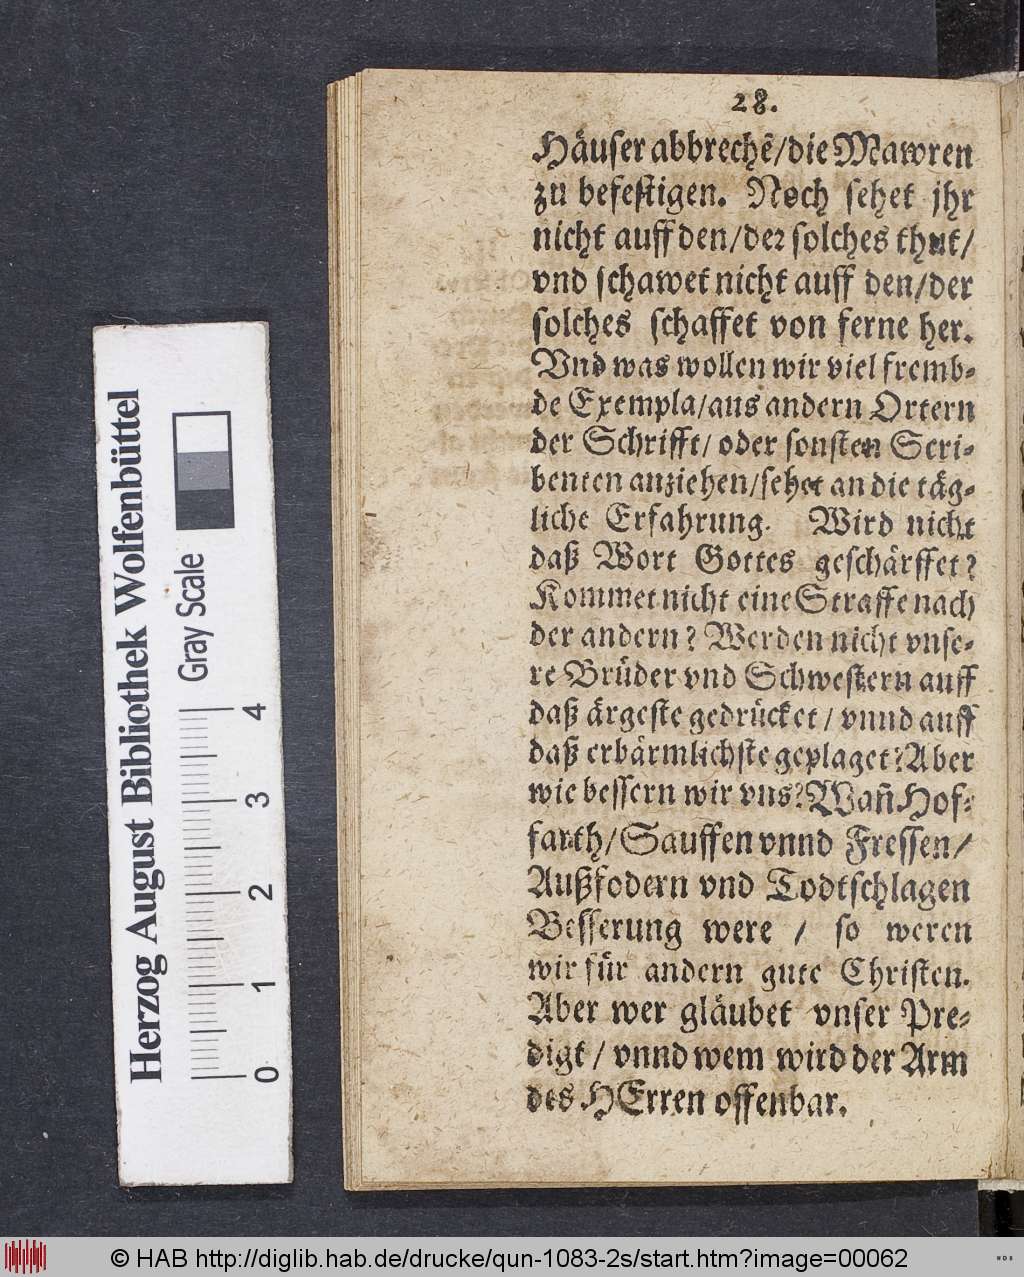 28.
Häuſer abbrechẽ/die Mawren
zu befeſtigen. Noch ſehet jhr
nicht auff den/der ſolches thut/
vnd ſchawet nicht auff den/der
ſolches ſchaffet von ferne her.
Vnd was wollen wir viel fremb⸗
de Exempla/aus andern Ortern
der Schrifft/ oder ſonſten Scri⸗
benten anziehen/ſehet an die täg⸗
liche Erfahrung. Wird nicht
daß Wort Gottes geſchärffet?
Kommet nicht eine Straffe nach
der andern? Werden nicht vnſe⸗
re Brüder vnd Schweſtern auff
daß ärgeſte gedrücket/ vnnd auff
daß erbärmlichſte geplaget? Aber
wie beſſern wir vns? Wañ Hof⸗
farth/Sauffen vnnd Freſſen/
Außfodern vnd Todtſchlagen
Beſſerung were / ſo weren
wir für andern gute Chriſten.
Aber wer gläubet vnſer Pre⸗
digt/ vnnd wem wird der Arm
des HErren offenbar.
Herzog August Bibliothek Wolfenbüttel
Gray Scale
0 1 2 3 4
© HAB http://diglib.hab.de/drucke/qun-1083-2s/start.htm?image=00062